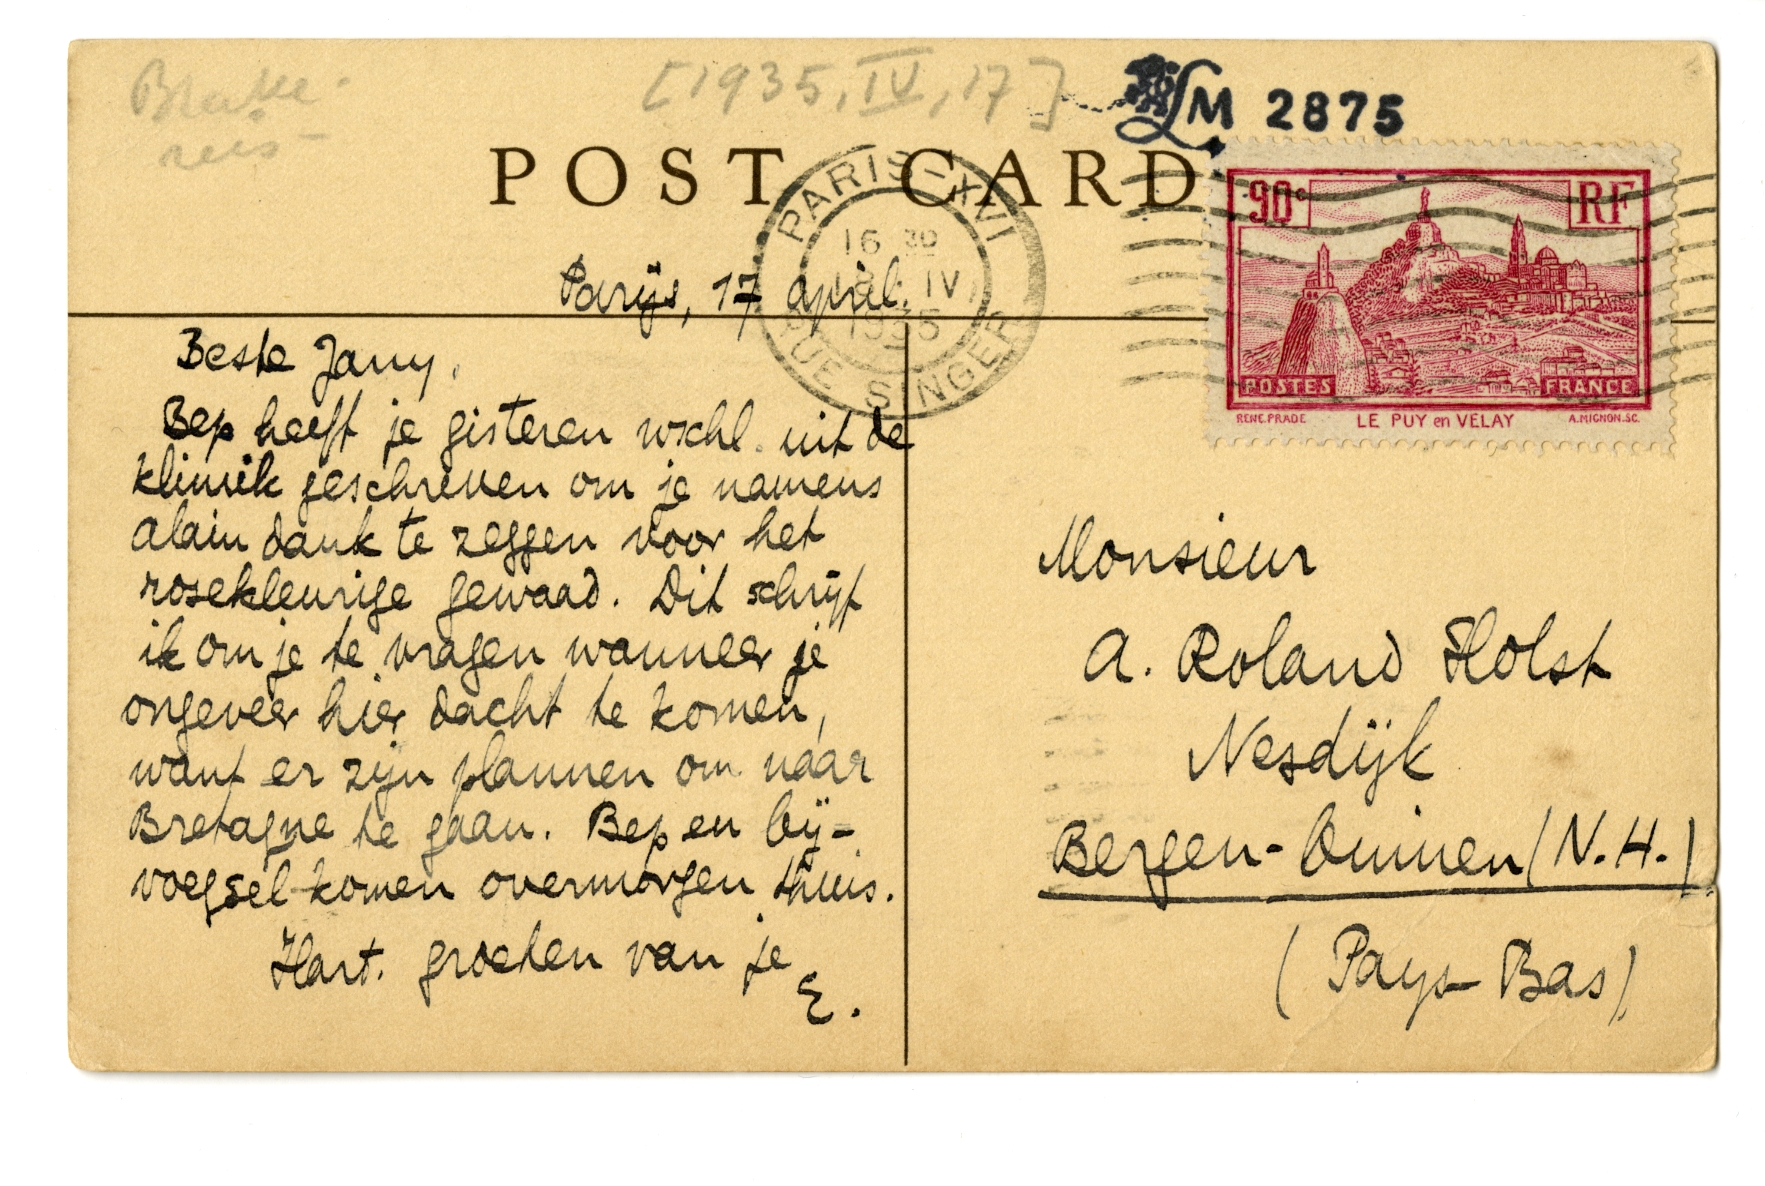 [1935, IV, 17]
LM 2875
POST CARD
PARIS-XVI
16 30
IV
1935
RUE SINGER
90c
RF
POSTES
FRANCE
RENE.PRADE
LE PUY en VELAY
A.MIGNON.SC.
Parijs, 17 april.
Beste Jany,
Bep heeft je gisteren wschl. uit de
kliniek geschreven om je namens
Alain dank te zeggen voor het
rosekleurige gewaad. Dit schrijf
ik om je te vragen wanneer je
ongeveer hier dacht te komen,
want er zijn plannen om naar
Bretagne te gaan. Bep en bij-
voegsel komen overmorgen thuis.
Hart. groeten van je
E.
Monsieur
A. Roland Holst
Nesdijk
Bergen-Binnen (N.H.)
(Pays-Bas)